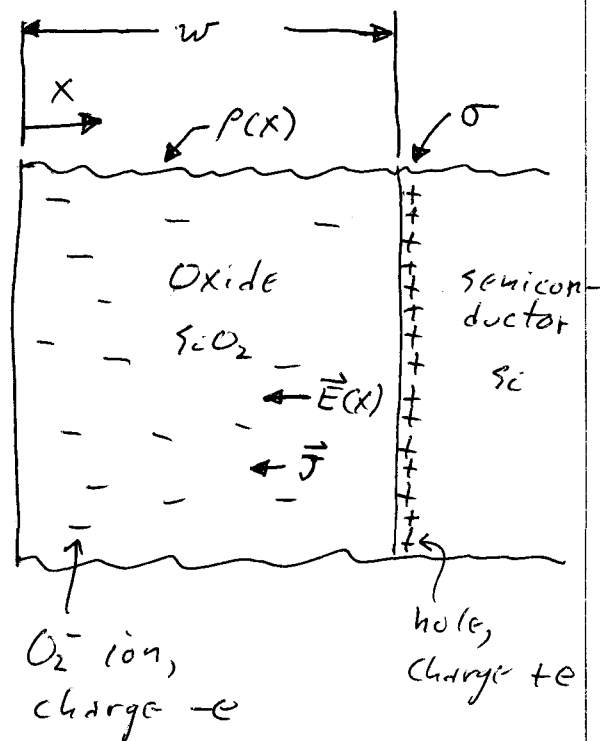 w
x
ρ(x)
σ
Oxide
SiO₂
semicon-
ductor
Si
E⃗(x)
J⃗
O₂⁻ ion,
charge -e
hole,
charge +e